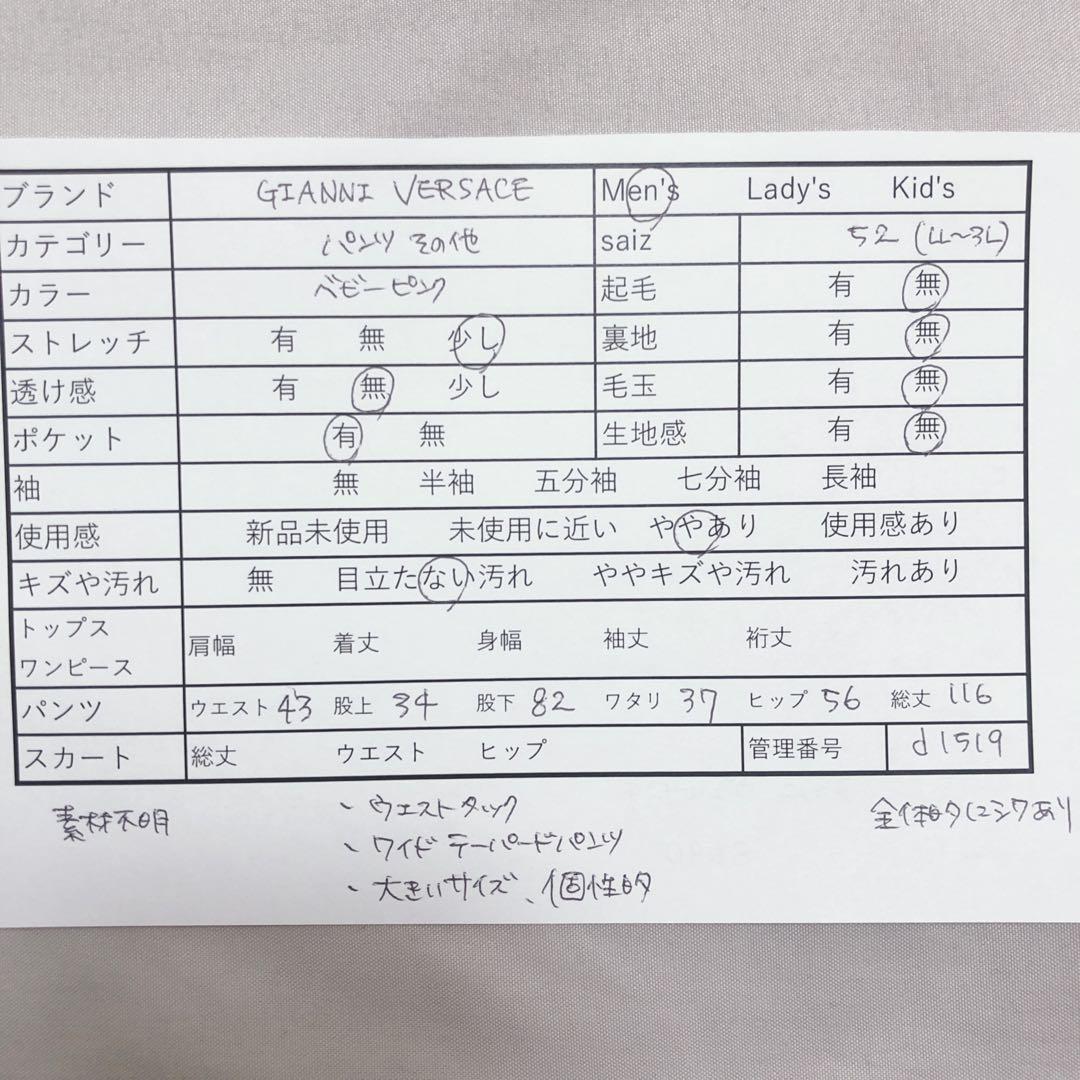 ブランド GIANNI VERSACE Men's Lady's Kid's
カテゴリー パンツ その他 saiz 52 (LL〜3L)
カラー ベビーピンク 起毛 有 無
ストレッチ 有 無 少し 裏地 有 無
透け感 有 無 少し 毛玉 有 無
ポケット 有 無 生地感 有 無
袖 無 半袖 五分袖 七分袖 長袖
使用感 新品未使用 未使用に近い ややあり 使用感あり
キズや汚れ 無 目立たない汚れ ややキズや汚れ 汚れあり
トップス
ワンピース 肩幅 着丈 身幅 袖丈 裄丈
パンツ ウエスト 43 股上 34 股下 82 ワタリ 37 ヒップ 56 総丈 116
スカート 総丈 ウエスト ヒップ 管理番号 d1519
素材不明 、ウエストタック 全体的にシワあり
、ワイドテーパードパンツ
、大きいサイズ、個性的